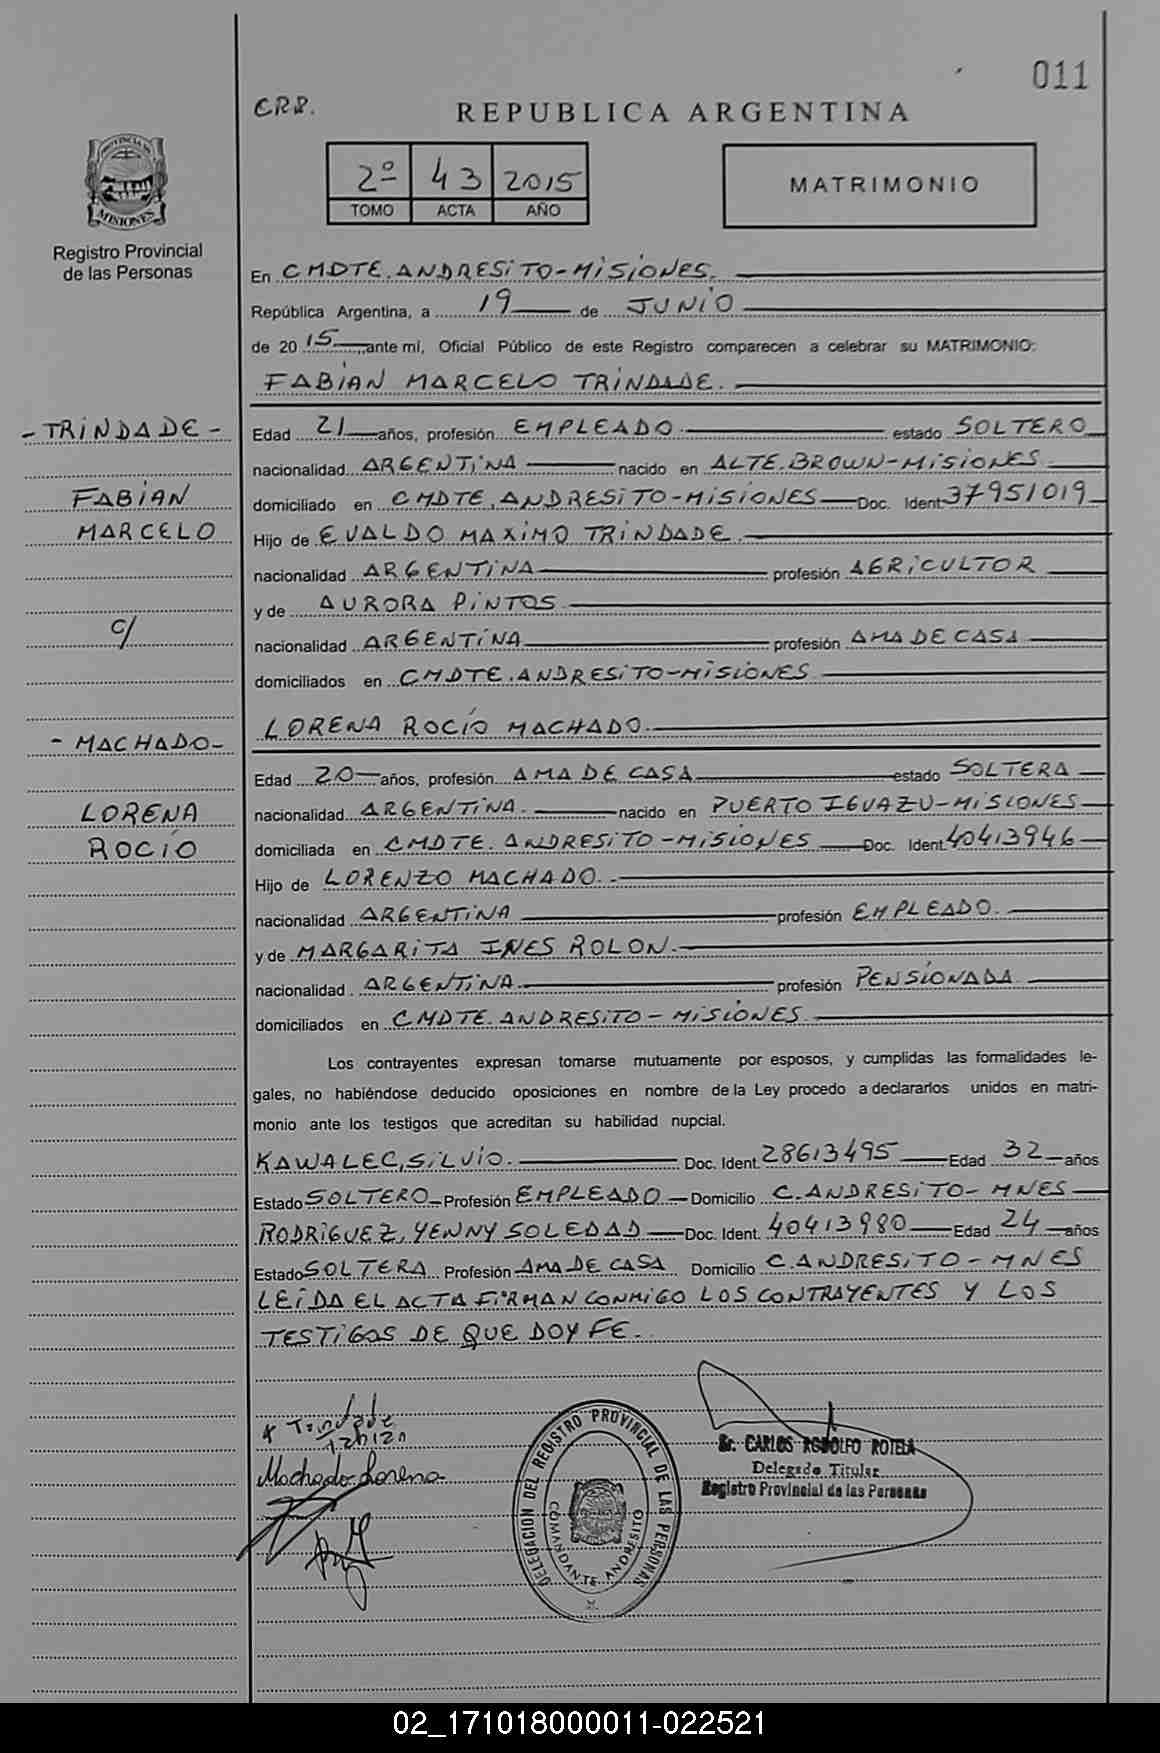 011
CRR.
REPUBLICA ARGENTINA
2º 43 2015
TOMO ACTA AÑO
MATRIMONIO
PROVINCIA DE
MISIONES
Registro Provincial
de las Personas
En CMDTE. ANDRESITO-MISIONES.
República Argentina, a 19 de JUNIO
de 20 15 ante mí, Oficial Público de este Registro comparecen a celebrar su MATRIMONIO:
FABIAN MARCELO TRINDADE.
- TRINDADE -
Edad 21 años, profesión EMPLEADO estado SOLTERO
nacionalidad ARGENTINA nacido en ALTE. BROWN-MISIONES
FABIAN
domiciliado en CMDTE. ANDRESITO-MISIONES Doc. Ident. 37951019
MARCELO
Hijo de EVALDO MAXIMO TRINDADE.
nacionalidad ARGENTINA profesión AGRICULTOR
y de AURORA PINTOS
c/
nacionalidad ARGENTINA profesión AMA DE CASA
domiciliados en CMDTE. ANDRESITO-MISIONES
LORENA ROCÍO MACHADO.
- MACHADO-
Edad 20 años, profesión AMA DE CASA estado SOLTERA
LORENA
nacionalidad ARGENTINA. nacido en PUERTO IGUAZU-MISIONES
ROCÍO
domiciliada en CMDTE. ANDRESITO-MISIONES Doc. Ident. 40413946
Hijo de LORENZO MACHADO.
nacionalidad ARGENTINA profesión EMPLEADO.
y de MARGARITA INES ROLON.
nacionalidad ARGENTINA. profesión PENSIONADA
domiciliados en CMDTE. ANDRESITO - MISIONES
Los contrayentes expresan tomarse mutuamente por esposos, y cumplidas las formalidades le-
gales, no habiéndose deducido oposiciones en nombre de la Ley procedo a declararlos unidos en matri-
monio ante los testigos que acreditan su habilidad nupcial.
KAWALEC, SILVIO. Doc. Ident. 28613495 Edad 32 años
Estado SOLTERO Profesión EMPLEADO Domicilio C. ANDRESITO- MNES
RODRIGUEZ, YENNY SOLEDAD Doc. Ident. 40413980 Edad 24 años
Estado SOLTERA Profesión AMA DE CASA Domicilio C. ANDRESITO - MNES
LEIDA EL ACTA FIRMAN CONMIGO LOS CONTRAYENTES Y LOS
TESTIGOS DE QUE DOY FE.
Trindade
Machado Lorena
DELEGACION DEL REGISTRO PROVINCIAL DE LAS PERSONAS
COMANDANTE ANDRESITO
Sr. CARLOS RODOLFO ROTELA
Delegado Titular
Registro Provincial de las Personas
02_171018000011-022521